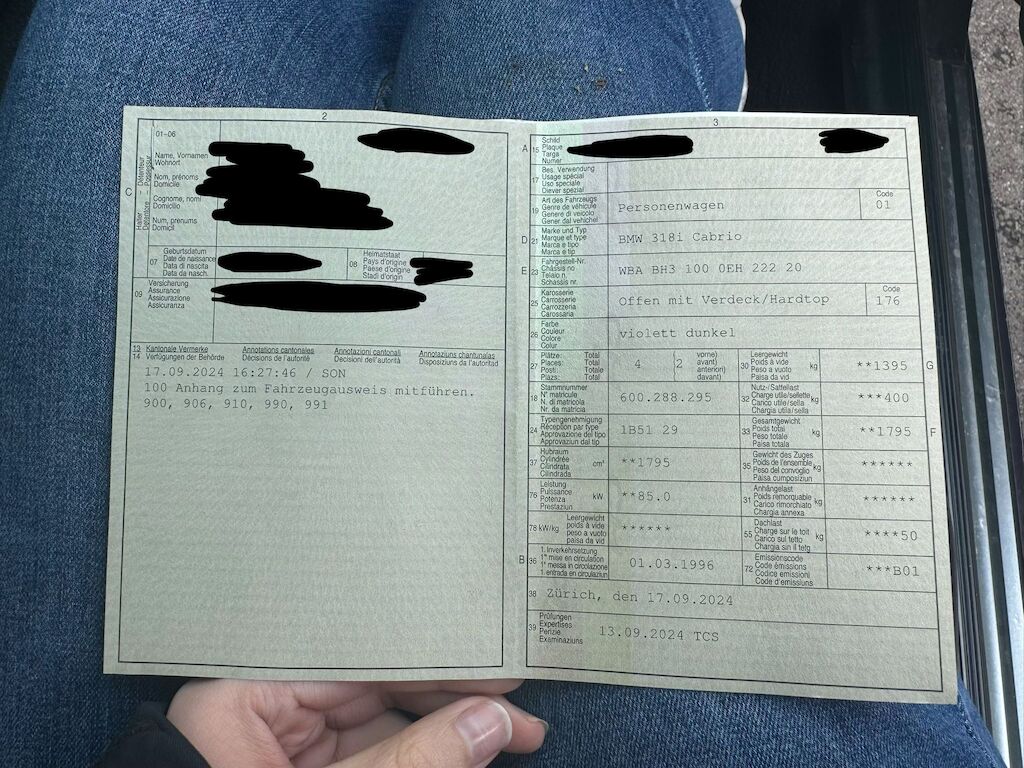 2
01-06
C
Halter – Détenteur
Detentore – Possessur
Name, Vornamen
Wohnort
Nom, prénoms
Domicile
Cognome, nomi
Domicilio
Num, prenums
Domicil
07
Geburtsdatum
Date de naissance
Data di nascita
Data da nasch.
08
Heimatstaat
Pays d'origine
Paese d'origine
Stadi d'origin
09
Versicherung
Assurance
Assicurazione
Assicuranza
13 Kantonale Vermerke Annotations cantonales Annotazioni cantonali Annotaziuns chantunalas
14 Verfügungen der Behörde Décisions de l'autorité Decisioni dell'autorità Disposiziuns da l'autoritad
17.09.2024 16:27:46 / SON
100 Anhang zum Fahrzeugausweis mitführen.
900, 906, 910, 990, 991
3
A 15
Schild
Plaque
Targa
Numer
17
Bes. Verwendung
Usage spécial
Uso speciale
Diever spezial
19
Art des Fahrzeugs
Genre de véhicule
Genere di veicolo
Gener dal vehichel
Personenwagen
Code
01
D 21
Marke und Typ
Marque et type
Marca e tipo
Marca e tip
BMW 318i Cabrio
E 23
Fahrgestell-Nr.
Châssis no
Telaio n.
Schassis nr.
WBA BH3 100 0EH 222 20
25
Karosserie
Carrosserie
Carrozzeria
Carossaria
Offen mit Verdeck/Hardtop
Code
176
26
Farbe
Couleur
Colore
Colur
violett dunkel
27
Plätze: Total
Places: Total
Posti: Totale
Plazs: Total
4
(2
vorne)
avant)
anteriori)
davant)
30
Leergewicht
Poids à vide
Peso a vuoto
Paisa da vid
kg
**1395
G
18
Stammnummer
N° matricule
N. di matricola
Nr. da matricla
600.288.295
32
Nutz-/Sattellast
Charge utile/sellette
Carico utile/sella
Chargia utila/sella
kg
***400
24
Typengenehmigung
Réception par type
Approvazione del tipo
Approvaziun dal tip
1B51 29
33
Gesamtgewicht
Poids total
Peso totale
Paisa totala
kg
**1795
F
37
Hubraum
Cylindrée
Cilindrata
Cilindrada
cm³
**1795
35
Gewicht des Zuges
Poids de l'ensemble
Peso del convoglio
Paisa cumposiziun
kg
******
76
Leistung
Puissance
Potenza
Prestaziun
kW
**85.0
31
Anhängelast
Poids remorquable
Carico rimorchiato
Chargia annexa
kg
******
78 kW/kg
Leergewicht
poids à vide
peso a vuoto
paisa da vid
******
55
Dachlast
Charge sur le toit
Carico sul tetto
Chargia sin il tetg
kg
****50
B 36
1. Inverkehrsetzung
1re mise en circulation
1a messa in circolazione
1. entrada en circulaziun
01.03.1996
72
Emissionscode
Code émissions
Codice emissioni
Code d'emissiuns
***B01
38
Zürich, den 17.09.2024
39
Prüfungen
Expertises
Perizie
Examinaziuns
13.09.2024 TCS